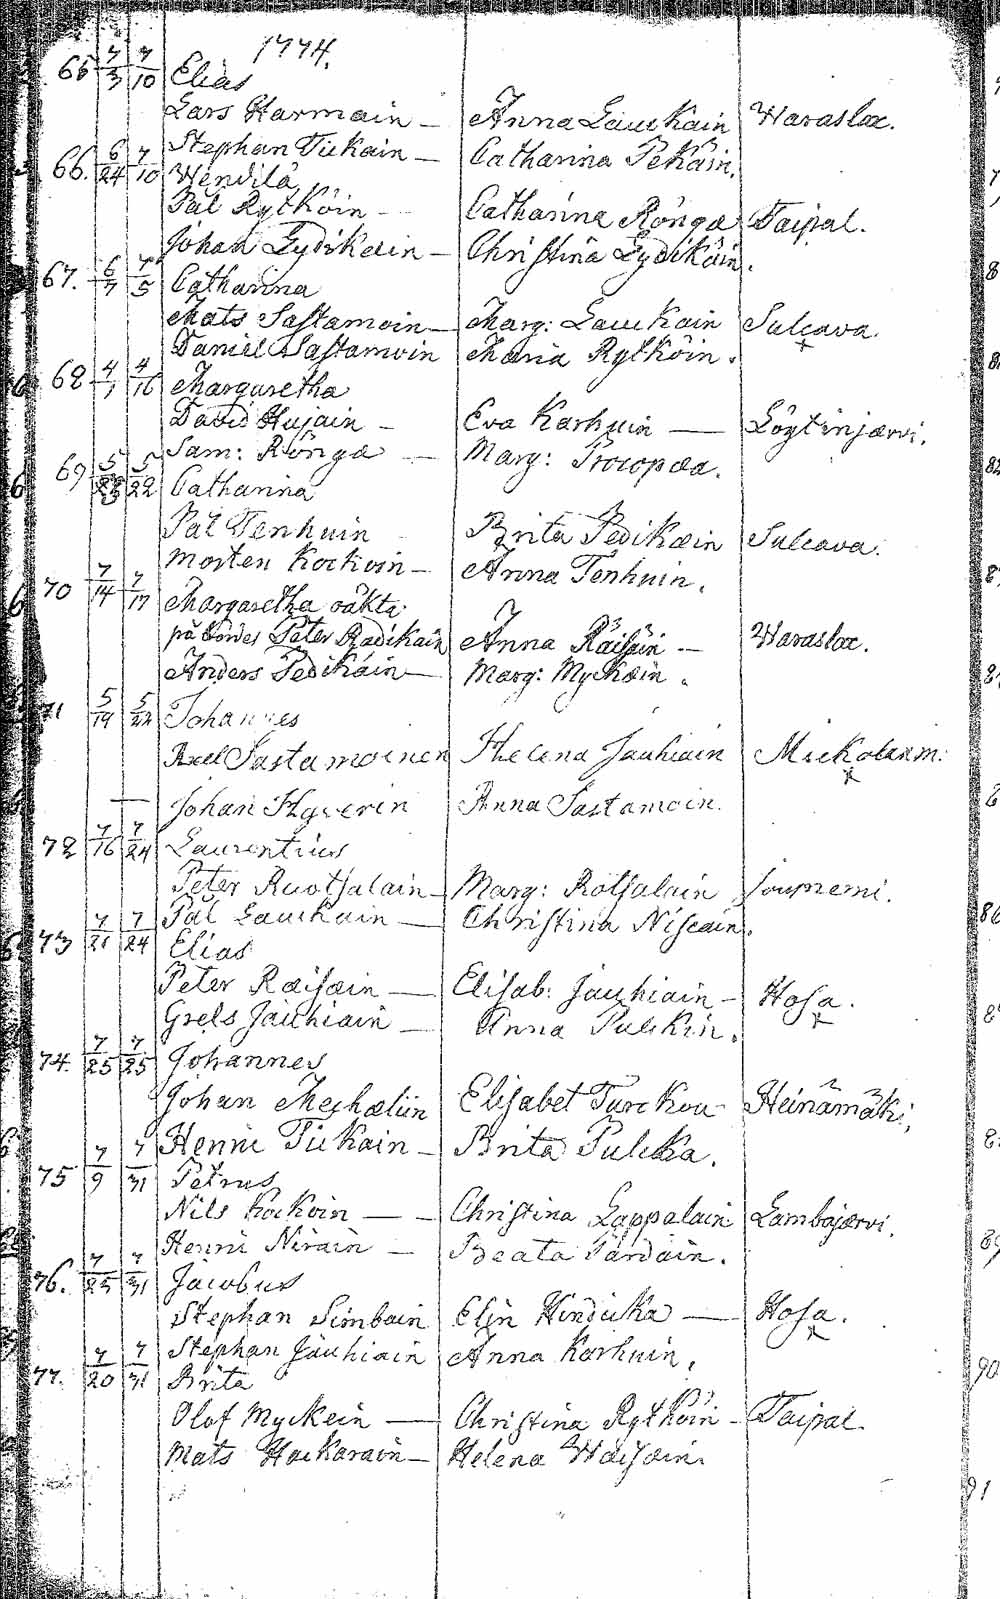 1774.
65 7/3 7/10 Elias
Lars Harmain — Anna Laukain Haraslax.
Stephan Tiikain — Catharina Pekäin.
66. 6/24 7/10 Wendila
Pål Rytköin - Catharina Rönga Taipal.
Johan Lydikäin — Christina Lydikäin.
67. 6/7 7/5 Catharina
Mats Sastamoin — Marg: Laukain Sulcava.
Daniel Sastamoin Maria Rytköin.
68 4/7 4/16 Margaretha
David Hujain - Eva Karhuin — Löytinjærvi.
Sam: Rönga — Marg: Procopæa.
69 5/23 5/22 Catharina
Pål Tenhuin Brita Pedikæin Sulcava.
Morten Kockoin — Anna Tenhuin.
70 7/14 7/17 Margaretha oäkta
på Bordes Peter Radikain Anna Räisäin — Haraslax.
Anders Pedikäin — Marg: Myckæin.
71 5/19 5/22 Johannes
Axel Sastamoinen Helena Jauhiain Mickolanm:
— Johan Hyverin Anna Sastamoin.
72 7/16 7/24 Laurentius
Peter Ruotsalain — Marg: Rotsalain Joupnemi.
Pål Laukain — Christina Niscain.
73 7/21 7/24 Elias
Peter Räisæin — Elisab: Jauhiain — Hosa.
Grels Jauhiain — Anna Pulckin.
74. 7/25 7/25 Johannes
Johan Meshæliin Elisabet Turckou Heinämäki,
Henric Tiikain — Brita Pulcka.
75 7/9 7/31 Petrus
Nils Kockoin — Christina Lappalain Lambajærvi.
Henric Nirain — Beata Pardain.
76. 7/25 7/31 Jacobus
Stephan Simbain Elin Hinducka — Hosa.
Stephan Jauhiain Anna Karhuin.
77. 7/20 7/31 Brita
Olof Myckein — Christina Rytköin — Taipal.
Mats Hackarain — Helena Wäisäin.